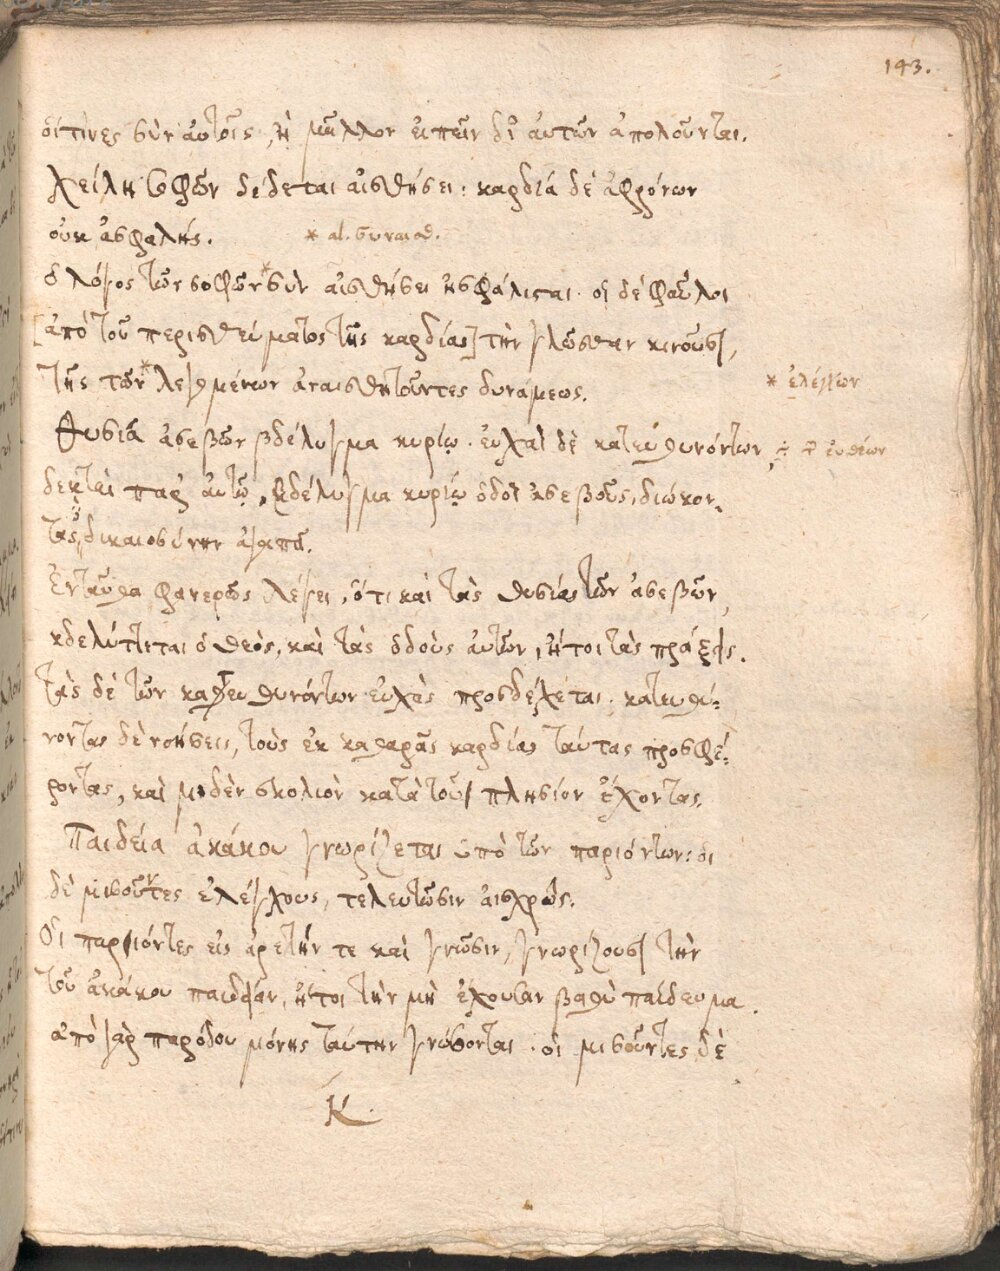 143.
οἵτινες σὺν αὐτοῖς, ἢ μᾶλλον εἰπεῖν δι' αὐτῶν ἀπολοῦνται.
Χείλη σοφῶν δέδεται αἰσθήσει: καρδία δὲ ἀφρόνων
οὐκ ἀσφαλής. * al. συναισθ.
ὁ λόγος τῶν σοφῶν * σὺν αἰσθήσει ἠσφάλισται. οἱ δὲ φαῦλοι
[ἀπὸ τοῦ περισσεύματος τῆς καρδίας] τὴν γλῶσσαν κινοῦσι,
τῆς τῶν * λεγομένων ἀναισθητοῦντες δυνάμεως. * ἐλέγχων
Θυσία ἀσεβῶν βδέλυγμα κυρίῳ. εὐχαὶ δὲ κατευθυνόντων, ÷ εὐθέων
δεκταὶ παρ' αὐτῷ. βδέλυγμα κυρίῳ ὁδοὶ ἀσεβοῦς, διώκον-
τας δικαιοσύνην ἀγαπᾷ.
Ἐνταῦθα φανερῶς λέγει, ὅτι καὶ τὰς θυσίας τῶν ἀσεβῶν,
βδελύττεται ὁ θεὸς, καὶ τὰς ὁδοὺς αὐτῶν, ἤτοι τὰς πράξεις.
τὰς δὲ τῶν κατευθυνόντων εὐχὰς προσδέχεται. κατευθύ-
νοντας δὲ νοήσεις, τοὺς ἐκ καθαρᾶς καρδίας ταύτας προσφέ-
ροντας, καὶ μηδὲν σκολιὸν κατὰ τοῦ πλησίον ἔχοντας.
Παιδεία ἀκάκου γνωρίζεται ὑπὸ τῶν παριόντων: οἱ
δὲ μισοῦντες ἐλέγχους, τελευτῶσιν αἰσχρῶς.
Οἱ παριόντες εἰς ἀρετήν τε καὶ γνῶσιν, γνωρίζουσι τὴν
τοῦ ἀκάκου παιδείαν, ἤτοι τὴν μὴ ἔχουσαν βαθὺ παίδευμα.
ἀπὸ γὰρ παρόδου μόνης ταύτην γνώσονται. οἱ μισοῦντες δὲ
Κ.